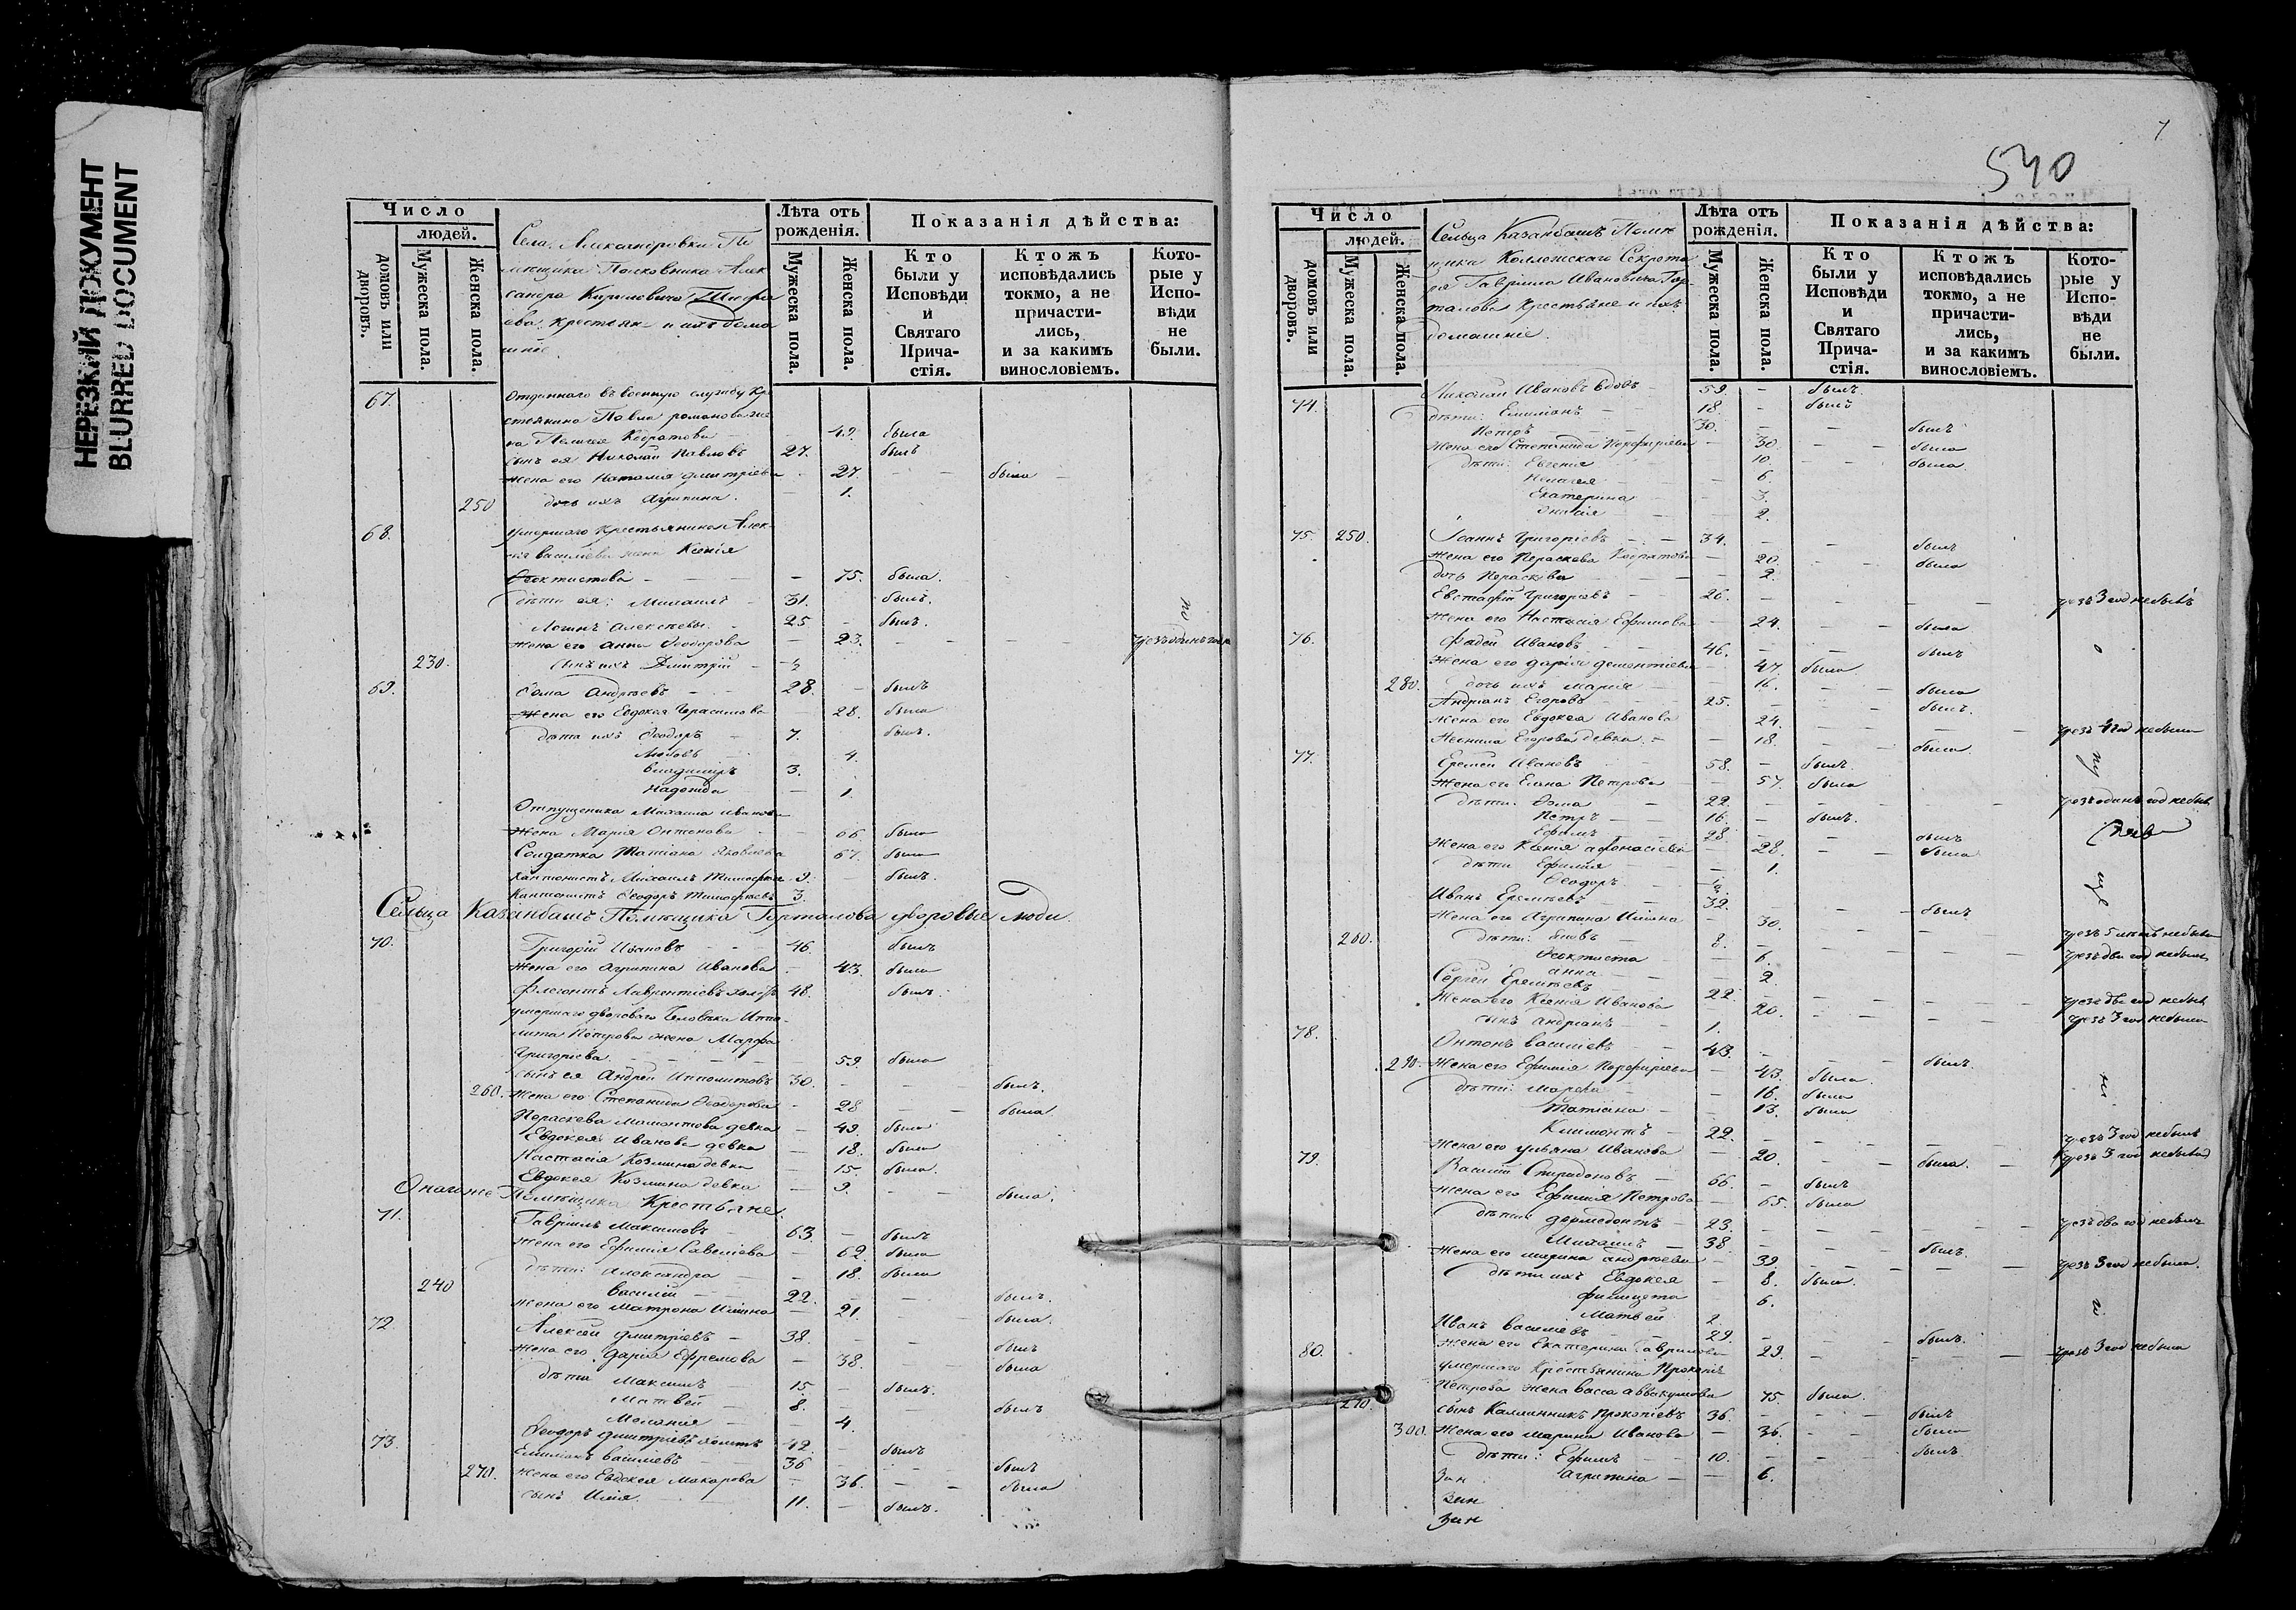 НЕРЕЗКИЙ ДОКУМЕНТ
BLURRED DOCUMENT
Число
людей.
домовъ или дворовъ.
Мужеска пола.
Женска пола.
Села Александровки По
мѣщика Полковника Алек
сандра Кириловича
крестьяне и ихъ дома
шніе.
Лѣта отъ рожденія.
Мужеска пола.
Женска пола.
Показанія дѣйства:
Кто были у Исповѣди и Святаго Прича- стія.
Ктожъ исповѣдались токмо, а не причасти- лись, и за какимъ винословіемъ.
Кото- рые у Испо- вѣди не были.
67. Отданнаго въ военную службу кре
стьянина Павла Романова же
на Пелагея Кодратова 49. была
сынъ ея Николай Павловъ 27. былъ
жена его Наталія Дмитріева 27. была
250 дочь ихъ Агрипина. 1.
68. умершаго крестьянина Алек
сія Васильева жена Ксенія
Феоктистова 75. была.
дѣти ея: Михаилъ 31. былъ.
Логинъ Алексѣевы. 25 былъ.
жена его Анна Феодорова 23.
230. сынъ ихъ Дмитрій
69. Фома Андреевъ 28. былъ
Жена его Евдокея Герасимова 28. была
дѣти ихъ Феодоръ 7. былъ.
Любовь 4.
Владимиръ 3.
Надежда 1.
Отпущеника Михаила Иванова
жена Марія Онтонова 66 была
Солдатка Татіана Яковлева 67. была
кантонистъ Михаилъ Тимофѣевъ 9. былъ.
Кантонистъ Феодоръ Тимофѣевъ 3.
Сельца Казанбашъ Помѣщика Горталова дворовые люди.
70. Григорій Ивановъ 46. былъ
жена его Агрипина Иванова 43. была
Флегонтъ Лаврентіевъ холостъ 48. былъ.
умершаго двороваго человѣка Иппо
лита Петрова жена Марфа
Григоріева. 59. была
сынъ ея Андрей Ипполитовъ 30. былъ.
260. Жена его Степанида Феодорова 28 была.
Параскева Мамонтова девка 49. была
Евдокея Иванова девка 18. была
Настасія Козмина девка 15. была.
Евдокея Козмина девка 9. была.
Онагоже Помѣщика Крестьяне.
71. Гавріилъ Максимовъ 63. былъ
Жена его Ефимія Савельева 62 была
дѣти: Александра 18. была
240 Василій 22. былъ.
жена его Матрона Ильина 21. была.
72. Алексѣй Дмитріевъ 38. былъ
жена его Дарія Ефремова 38. была
дѣти Максимъ 15 былъ.
Матвей 8. былъ
Меланія 4.
Феодоръ Дмитріевъ холостъ 42. былъ
73. Емильянъ Васильевъ 36 былъ
270. Жена его Евдокея Макарова 36. была
сынъ Илія 11. былъ.
7
540
Число
людей.
домовъ или дворовъ.
Мужеска пола.
Женска пола.
Сельца Казанбашъ Помѣ
щика Коллежскаго Секрета
ря Гавріила Ивановича Гор-
талова Крестьяне и ихъ
домашніе.
Лѣта отъ рожденія.
Мужеска пола.
Женска пола.
Показанія дѣйства:
Кто были у Исповѣди и Святаго Прича- стія.
Ктожъ исповѣдались токмо, а не причасти- лись, и за какимъ винословіемъ.
Кото- рые у Испо- вѣди не были.
74. Николай Ивановъ вдовъ 59. былъ.
дѣти: Емиліанъ 18. былъ
Петръ 30. былъ
Жена его Степанида Порфиріева 30. была
дѣти: Евгенія 10. была.
Пелагея 6.
Екатерина 3.
2.
75. 250. Іоаннъ Григорьевъ 34. былъ
Жена его Параскева Кодратова 20. была
дочь Параскева 2.
Евстафій Григорьевъ 26. чрезъ 3 год небылъ
Жена его Настасія Ефимова 24. была
76. Фадей Ивановъ 46. былъ
Жена его Дарія Дементіева 47. была
280. дочь ихъ Марія 16. была
Андріанъ Егоровъ 25. былъ.
Жена его Евдокея Иванова 24. небыла
Егорова девка. 18. была.
77. Еремей Ивановъ 58. былъ.
Жена его Елена Петрова 57. была
дѣти: Фома 22. чрезъ одинъ год небылъ
Петръ 16. былъ.
Ефимъ 28. былъ
Жена его Ксенія Афонасіева 28. была
дѣти Ефимія 1.
Феодоръ
Иванъ Еремѣевъ 32. былъ
Жена его Агрипина Ильина 30. чрезъ 5 лѣтъ небыла
260. дѣти: Яковъ 8. чрезъ два год небылъ
Феоктиста 6.
Анна 2.
Сергей Еремѣевъ 22. чрезъ два год небылъ
Жена его Ксенія Иванова 20. чрезъ 3 год небыла
сынъ Андріанъ 1.
78. Онтонъ Васильевъ 43. былъ.
290. Жена его Ефимія Порфиріева 43. была.
дѣти: Марфа 16. была
Татіана 13. была
Климонтъ 22. чрезъ 3 год небылъ
Жена его Ульяна Иванова 20. была. чрезъ 3 год
79. Василій Спиридоновъ 66. былъ
Жена его Ефимія Петрова 65. была
дѣти: Дормедонтъ 23. чрезъ два год небылъ
Михаилъ 38. былъ.
Жена его Марина Андреева 39. чрезъ 3 год небыла.
дѣти ихъ Евдокея 8. была.
6.
Матвей 2.
Иванъ Васильевъ 29. былъ.
Жена его Екатерина Гаврилова 29. чрезъ 3 год небыла
80. умершаго Крестьянина Прокопія
Петрова жена Васса Аввакумова 75. была.
270. сынъ Каллинникъ Прокопіевъ 36. былъ
300. Жена его Марина Иванова 36. была
дѣти: Ефимъ 10. былъ
Агрипина 6.